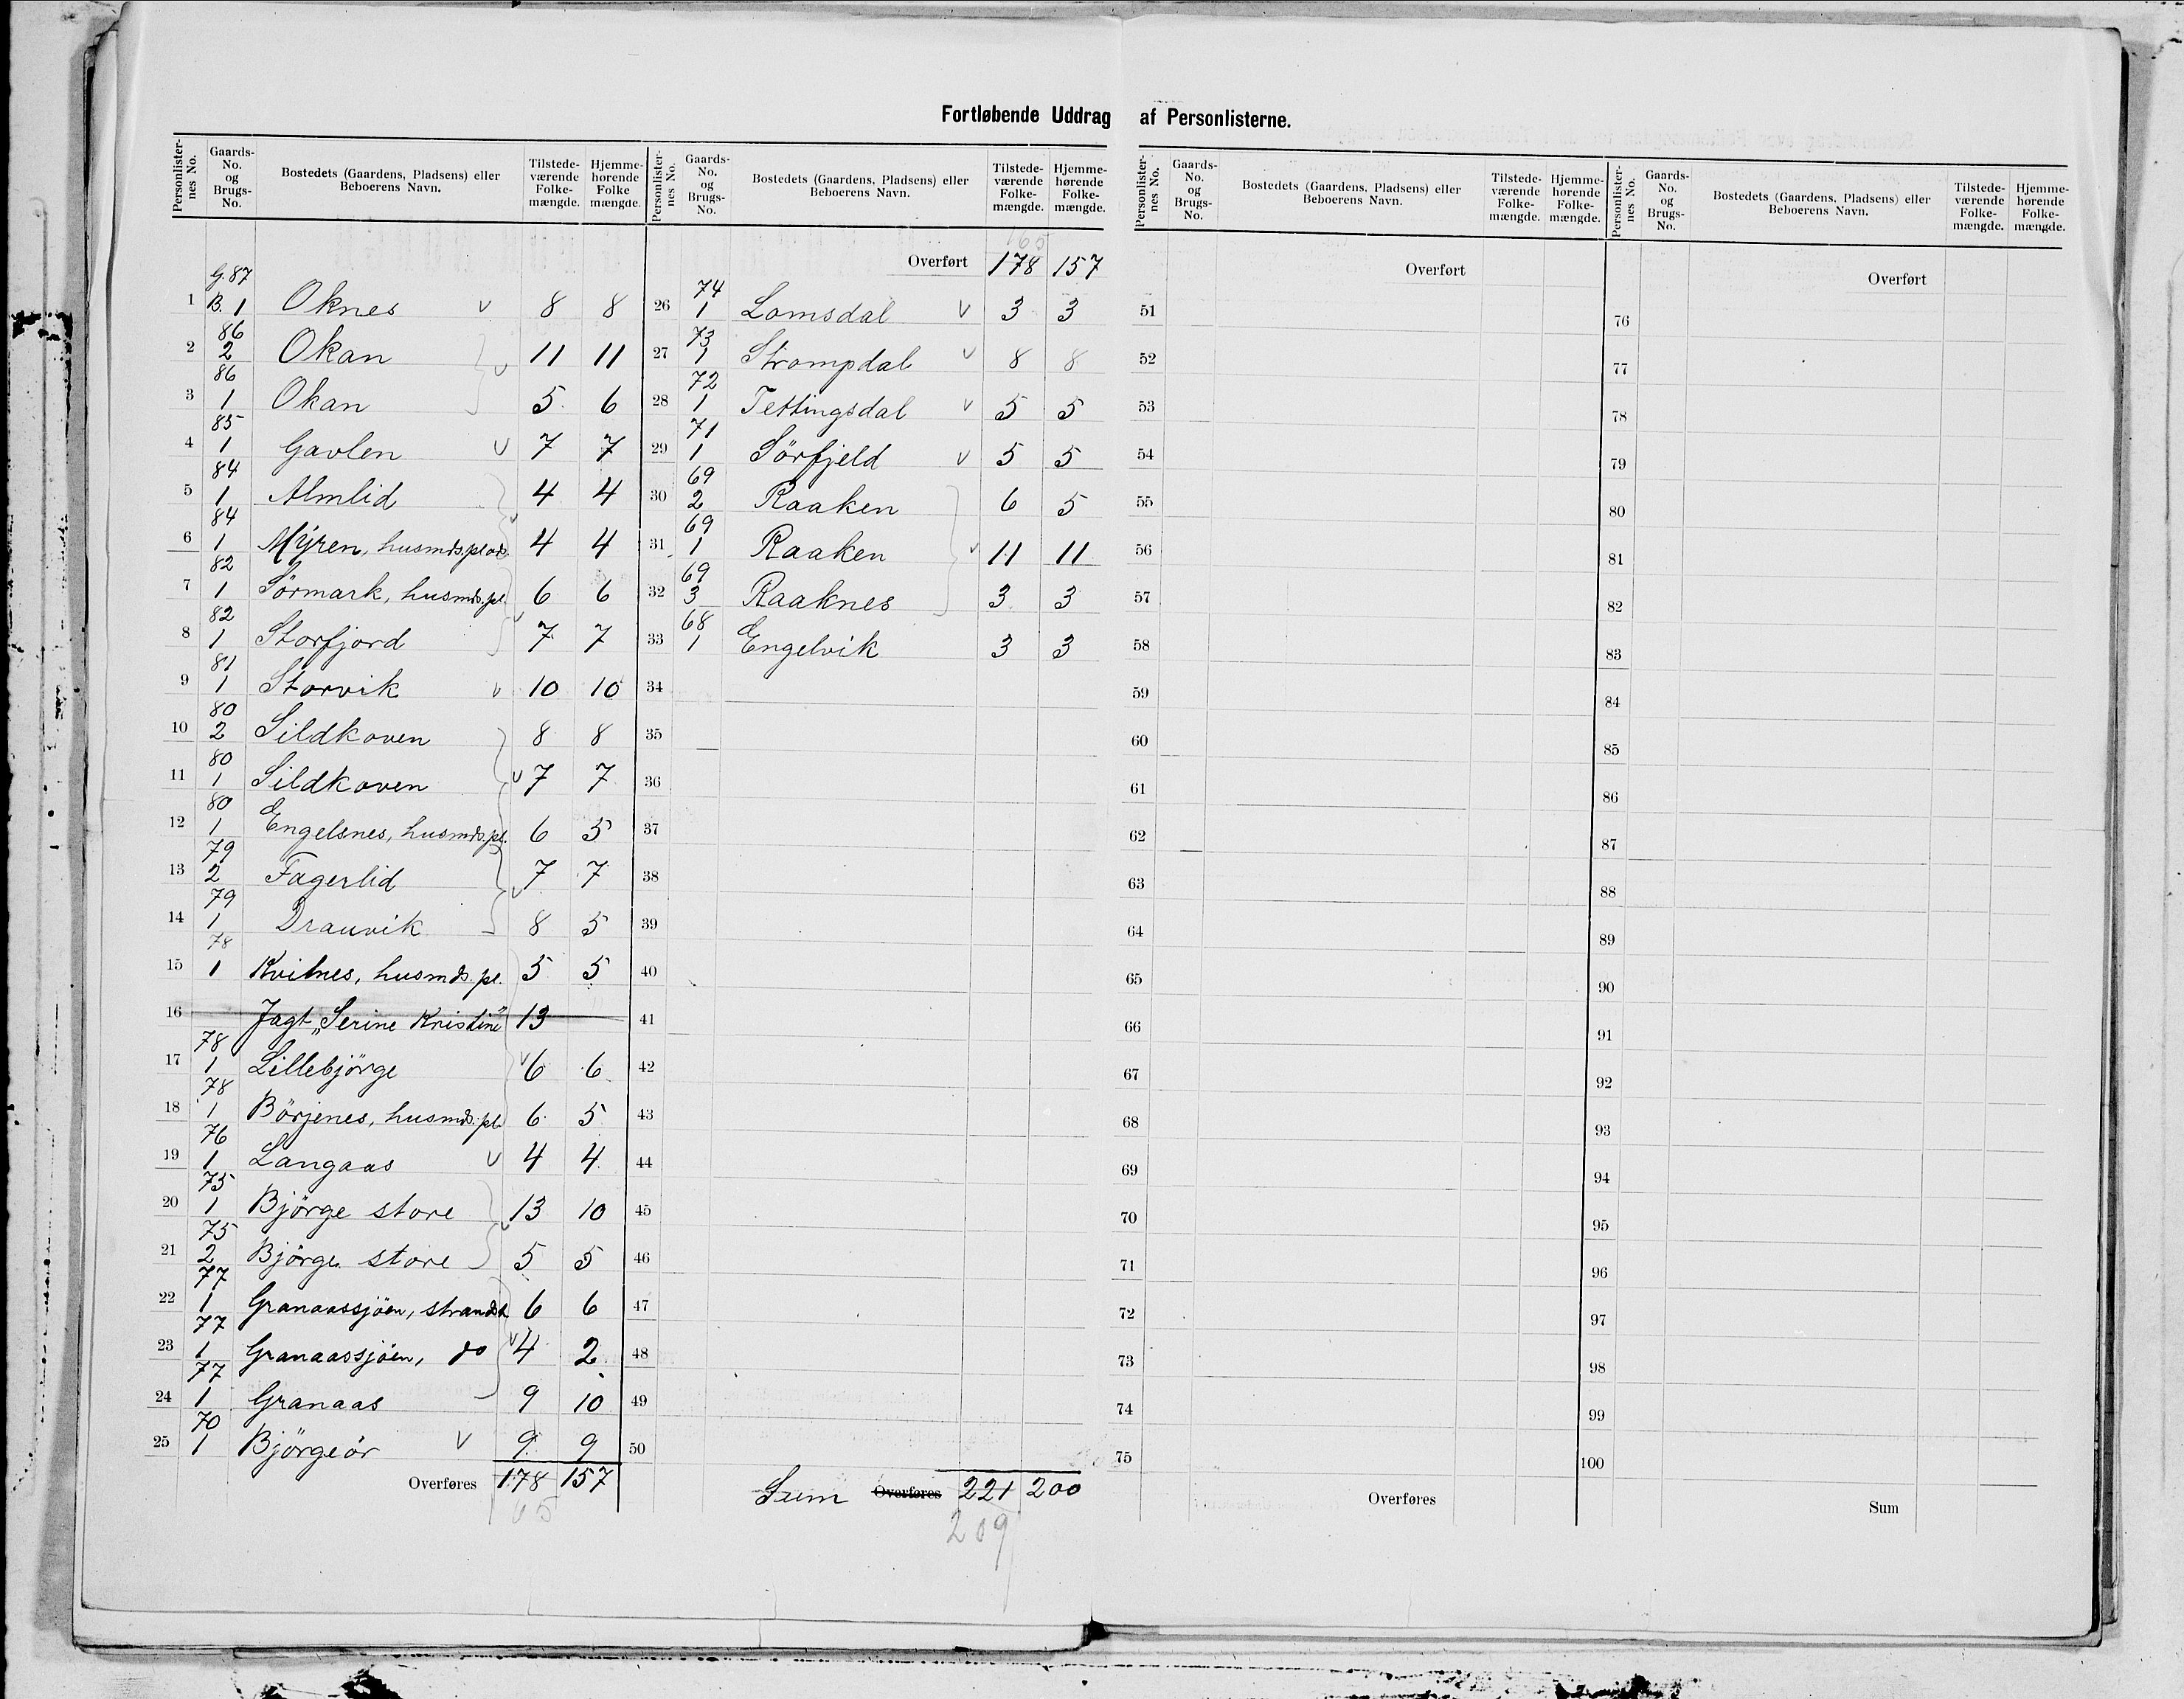 Fortløbende Uddrag af Personlisterne.
Personlister-nes No. | Gaards-No. og Brugs-No. | Bostedets (Gaardens, Pladsens) eller Beboerens Navn. | Tilstede-værende Folke-mængde. | Hjemme-hørende Folke mængde.
1 G. 87 B. 1 Oknes v 8 8
2 86 2 Okan v 11 11
3 86 1 Okan 5 6
4 85 1 Gavlen v 7 7
5 84 1 Almlid 4 4
6 84 1 Myren, husmds.plads. v 4 4
7 82 1 Sörmark, husmds.pl. 6 6
8 82 1 Storfjord v 7 7
9 81 1 Storvik v 10 10
10 80 2 Sildkoven 8 8
11 80 1 Sildkoven v 7 7
12 80 1 Engelsnes, husmds.pl. 6 5
13 79 2 Fagerlid v 7 7
14 79 1 Drauvik 8 5
15 78 1 Kvitnes, husmds.pl. 5 5
16 Jagt „Serine Kristine" 13
17 78 1 Lillebjörge v 6 6
18 78 1 Börjenes, husmds.pl. 6 5
19 76 1 Langaas v 4 4
20 75 1 Björge store v 13 10
21 75 2 Björge store 5 5
22 77 1 Granaassjöen, strands. 6 6
23 77 1 Granaassjöen, do v 4 2
24 77 1 Granaas 9 10
25 70 1 Björgeör v 9 9
Overføres 178 157
65
Personlister-nes No. | Gaards-No. og Brugs-No. | Bostedets (Gaardens, Pladsens) eller Beboerens Navn. | Tilstede-værende Folke-mængde. | Hjemme-hørende Folke-mængde.
165
Overført 178 157
26 74 1 Lomsdal v 3 3
27 73 1 Strompdal v 8 8
28 72 1 Tettingsdal v 5 5
29 71 1 Sörfjeld v 5 5
30 69 2 Raaken 6 5
31 69 1 Raaken v 11 11
32 69 3 Raaknes 3 3
33 68 1 Engelvik 3 3
34
35
36
37
38
39
40
41
42
43
44
45
46
47
48
49
50
Sum Overføres 221 200
209
Personlister-nes No. | Gaards-No. og Brugs-No. | Bostedets (Gaardens, Pladsens) eller Beboerens Navn. | Tilstede-værende Folke-mængde. | Hjemme-hørende Folke-mængde.
Overført
51
52
53
54
55
56
57
58
59
60
61
62
63
64
65
66
67
68
69
70
71
72
73
74
75
Overføres
Personlister-nes No. | Gaards-No. og Brugs-No. | Bostedets (Gaardens, Pladsens) eller Beboerens Navn. | Tilstede-værende Folke-mængde. | Hjemme-hørende Folke-mængde.
Overført
76
77
78
79
80
81
82
83
84
85
86
87
88
89
90
91
92
93
94
95
96
97
98
99
100
Sum